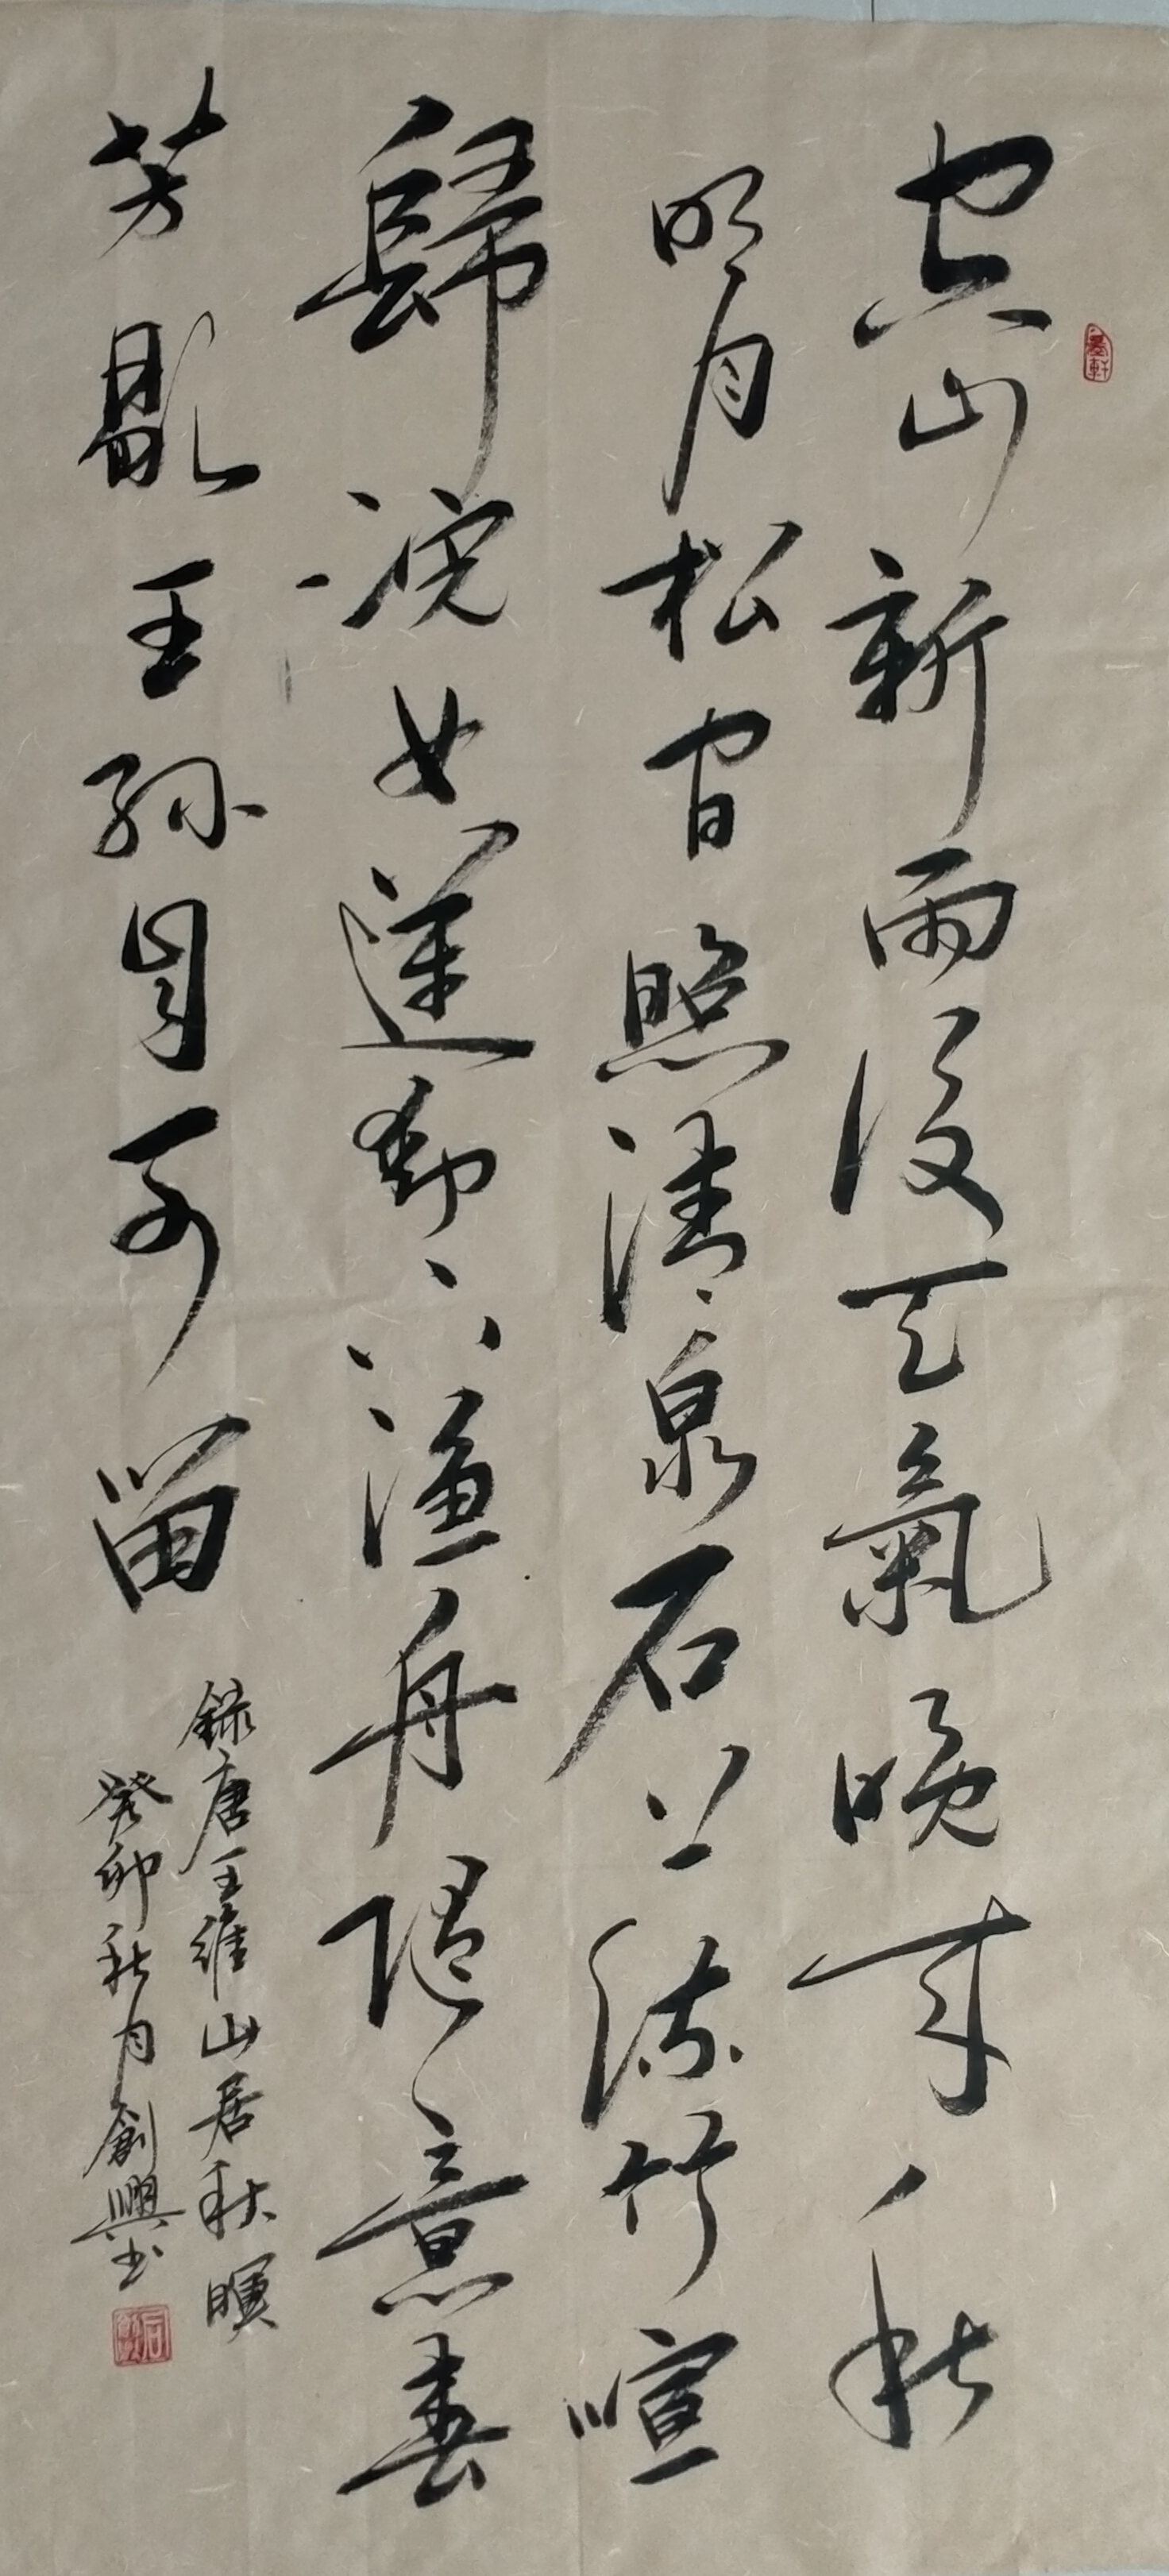 空山新雨後天氣晚来秋
明月松间照清泉石上流竹喧
歸浣女蓮動下漁舟随意春
芳歇王孫自可留
録唐王維山居秋暝
癸卯秋月創興书